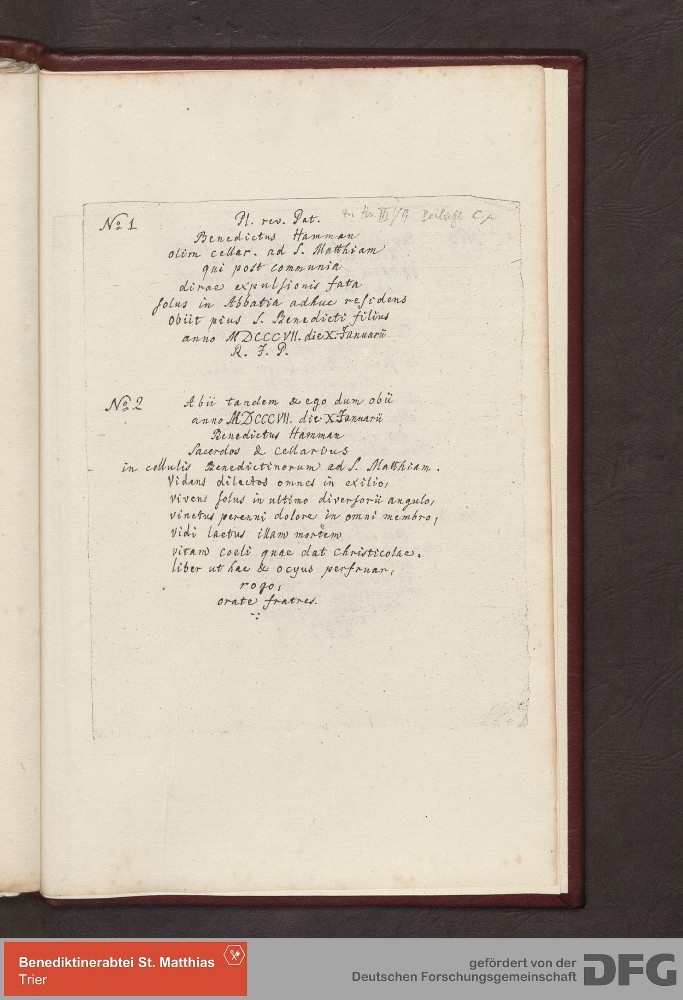 No 1
Pl. rev. Pat.
Benedictus Hamman
olim cellar. ad S. Matthiam
qui post communia
dirae expulsionis fata
solus in Abbatia adhuc residens
obiit pius S. Benedicti filius
anno MDCCCVII. die X. Januarii
R. I. P.
zu Hs. III/1A Beilage C
No 2
Abii tandem & ego dum obii
anno MDCCCVII. die X Januarii
Benedictus Hamman
Sacerdos & cellarius
in cellulis Benedictinorum ad S. Matthiam.
Videns dilectos omnes in exilio,
vivens solus in ultimo diversorii angulo,
vinctus perenni dolore in omni membro,
vidi laetus illam mortem
vitam coeli quae dat Christicolae.
liber ut hac & ocyus perfruar,
rogo,
orate fratres.
Benediktinerabtei St. Matthias
Trier
gefördert von der
Deutschen Forschungsgemeinschaft
DFG